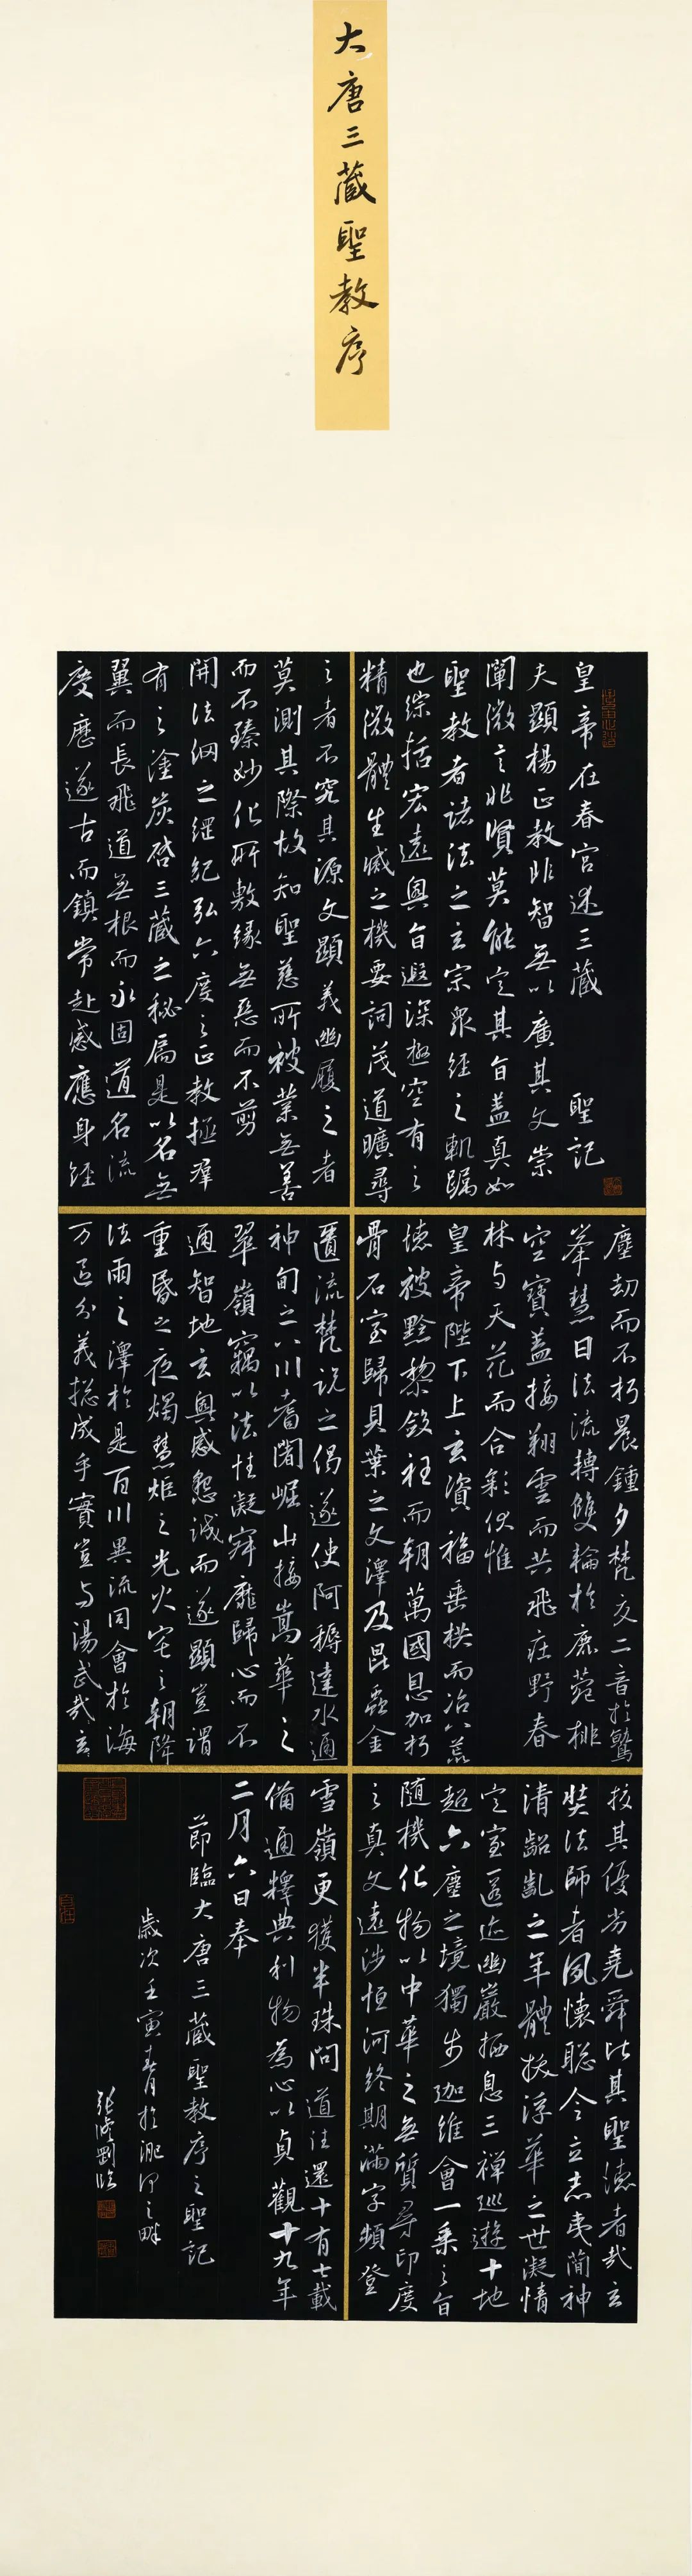 大唐三藏聖教序
皇帝在春宮述三藏　聖記
夫顯揚正教非智無以廣其文崇
闡微言非賢莫能定其旨蓋真如
聖教者諸法之玄宗眾經之軌躅
也綜括宏遠奧旨遐深極空有之
精微體生滅之機要詞茂道曠尋
之者不究其源文顯義幽履之者
莫測其際故知聖慈所被業無善
而不臻妙化所敷緣無惡而不剪
開法網之綱紀弘六度之正教拯羣
有之塗炭啓三藏之秘扃是以名無
翼而長飛道無根而永固道名流
慶歷遂古而鎮常赴感應身經
塵劫而不朽晨鍾夕梵交二音於鷲
峯慧日法流轉雙輪於鹿菀排
空寶蓋接翔雲而共飛莊野春
林與天花而合彩伏惟
皇帝陛下上玄資福垂拱而治八荒
德被黔黎斂衽而朝萬國恩加朽
骨石室歸貝葉之文澤及昆蟲金
匱流梵說之偈遂使阿耨達水通
神甸之八川耆闍崛山接嵩華之
翠嶺竊以法性凝寂靡歸心而不
通智地玄奧感懇誠而遂顯豈謂
重昏之夜燭慧炬之光火宅之朝降
法雨之澤於是百川異流同會於海
万區分義揔成乎實豈與湯武
校其優劣堯舜比其聖德者哉玄
奘法師者夙懷聰令立志夷簡神
清齠齔之年體拔浮華之世凝情
定室匿迹幽巖栖息三禪巡遊十地
超六塵之境獨步迦維會一乘之旨
隨機化物以中華之無質尋印度
之真文遠涉恒河終期滿字頻登
雪嶺更獲半珠問道往還十有七載
備通釋典利物為心以貞觀十九年
二月六日奉
節臨大唐三藏聖教序之聖記
歲次壬寅春月於淝河之畔
張